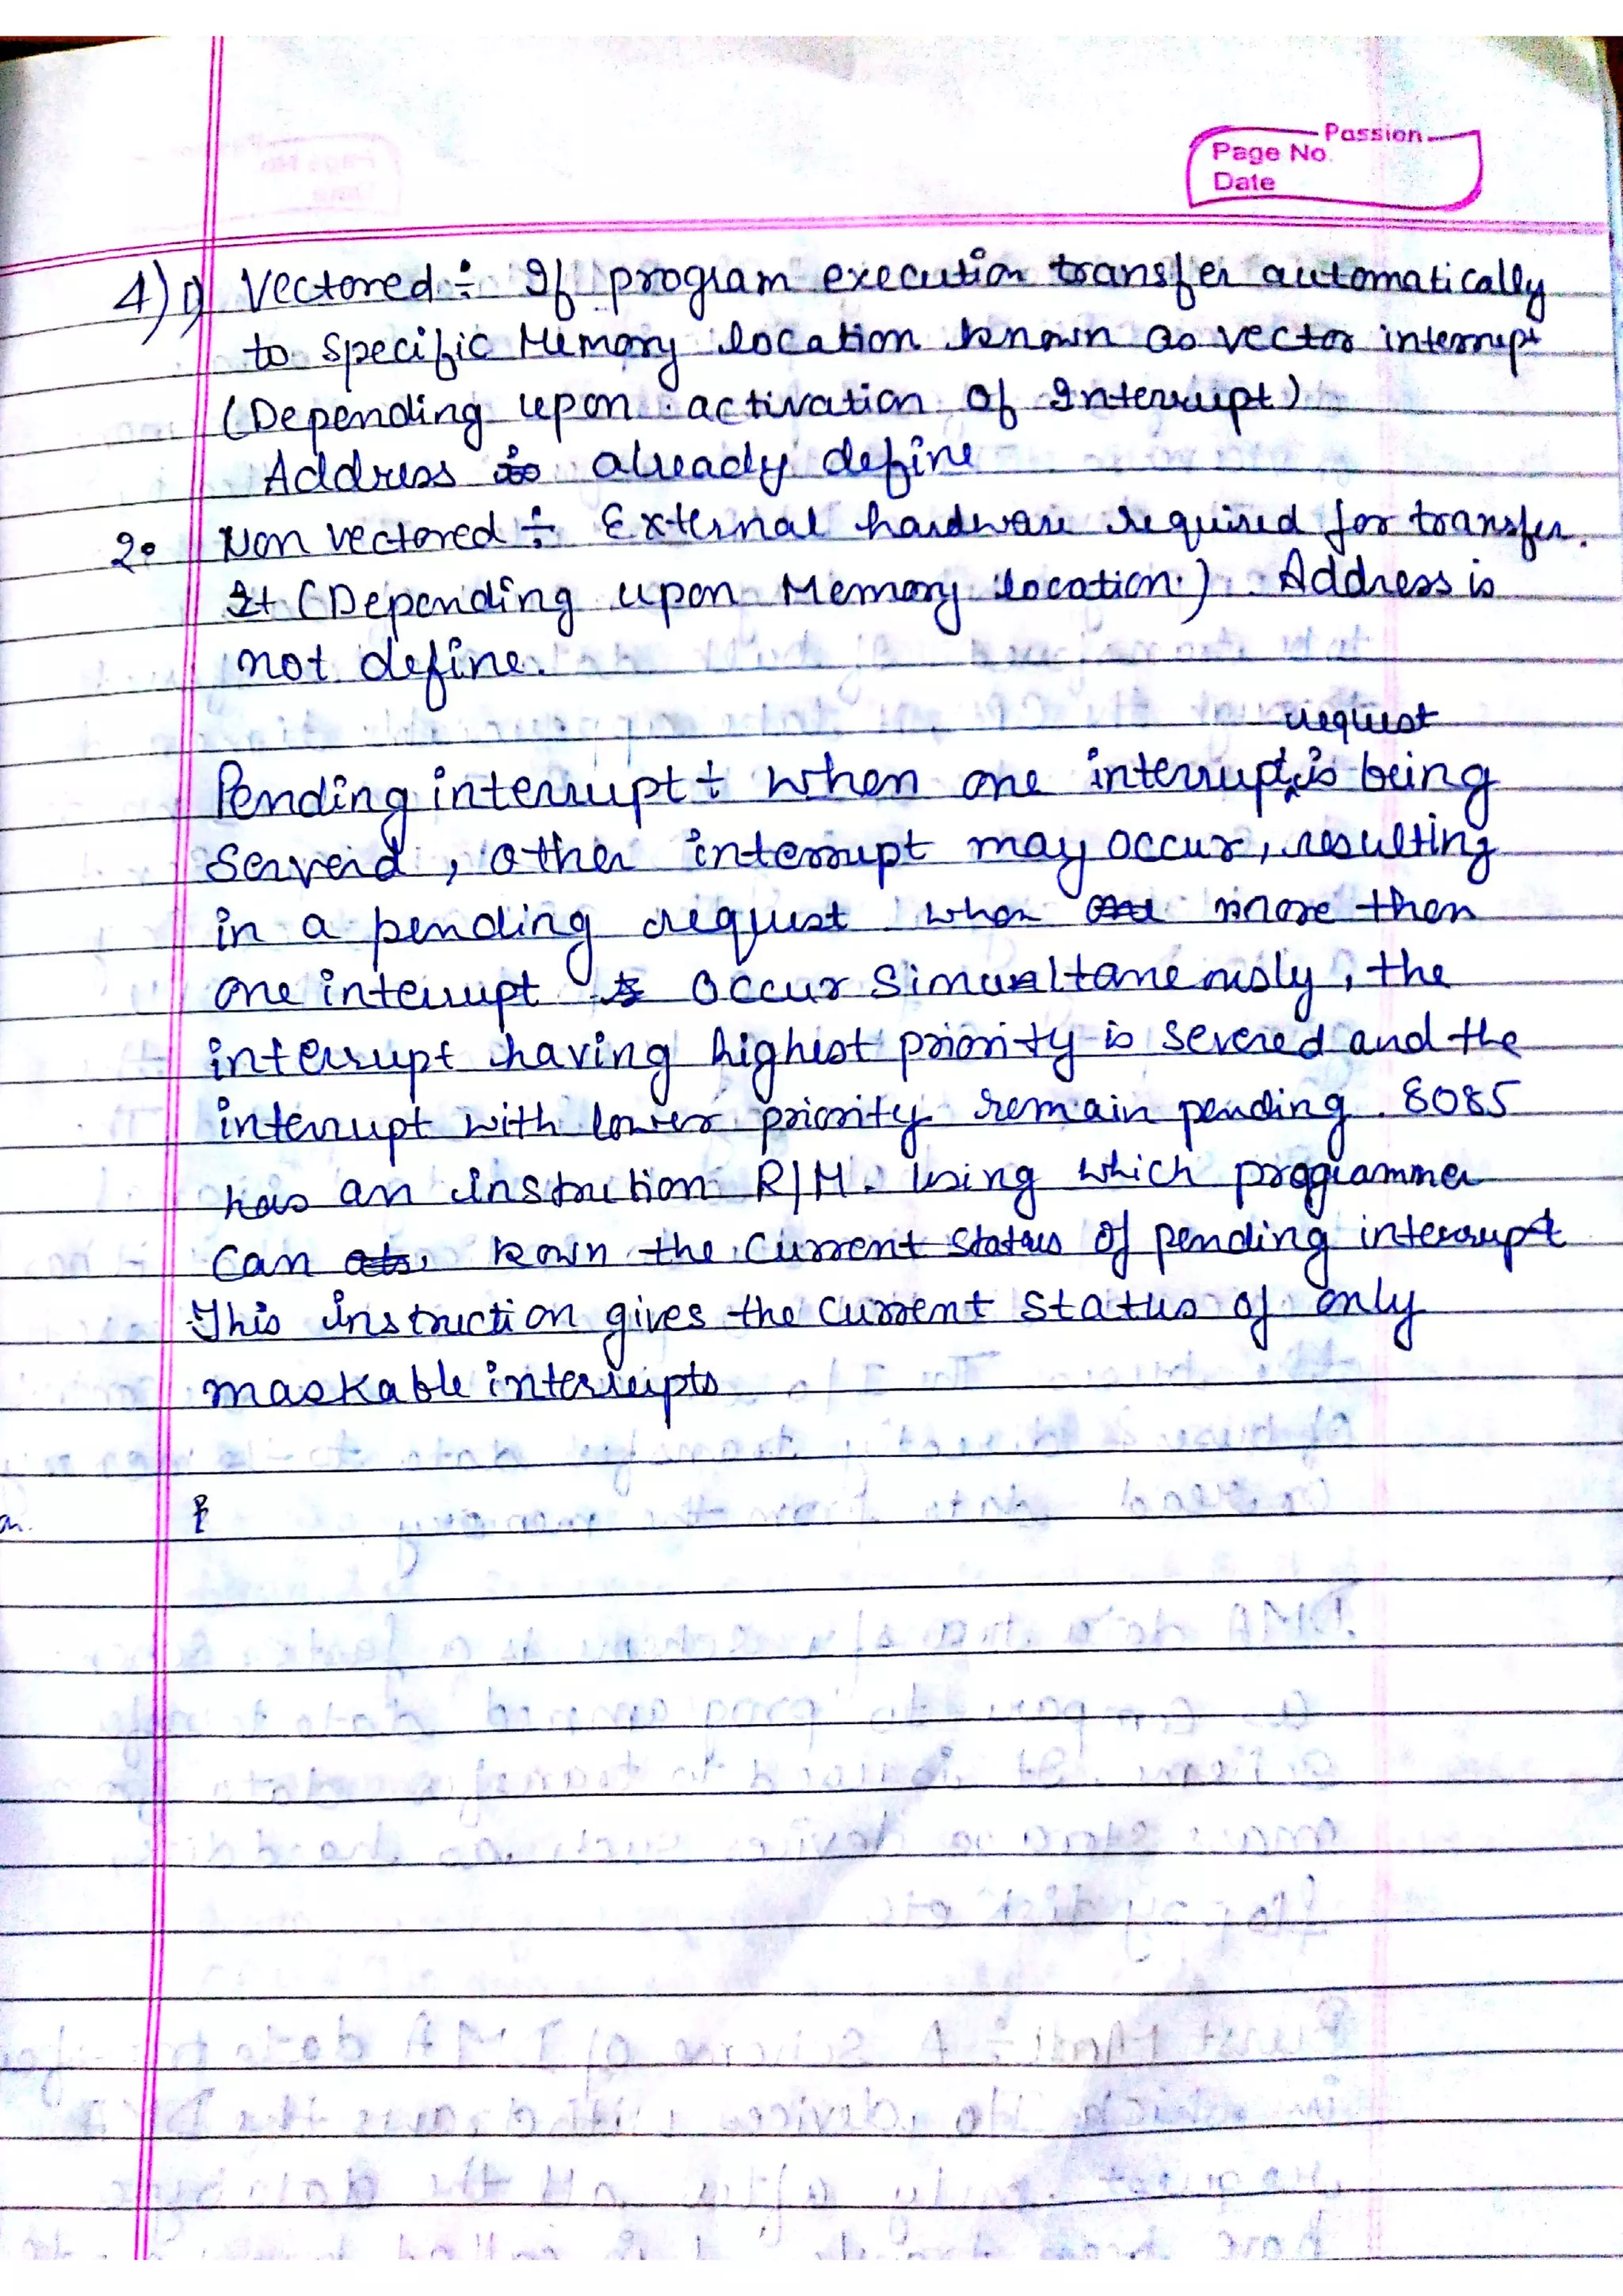 Passion
Page No.
Date
4) 1) Vectored ÷ If program execution transfer automatically
to specific Memory location known as vector interrupt
(Depending upon activation of Interrupt)
Address is already define
2. Non vectored ÷ External hardware required for transfer.
It (Depending upon Memory location.) Address is
not define.
request
Pending interrupt ÷ when one interrupt is being
Serverd, other interrupt may occur, resulting
in a pending request when more then
one interrupt occur Simualtaneously, the
interrupt having highest priority is severed and the
interrupt with lower priority remain pending. 8085
has an instruction R/M. Using which programmer
can kown the current status of pending interrupt
This instruction gives the current status of only
maskable interrupts